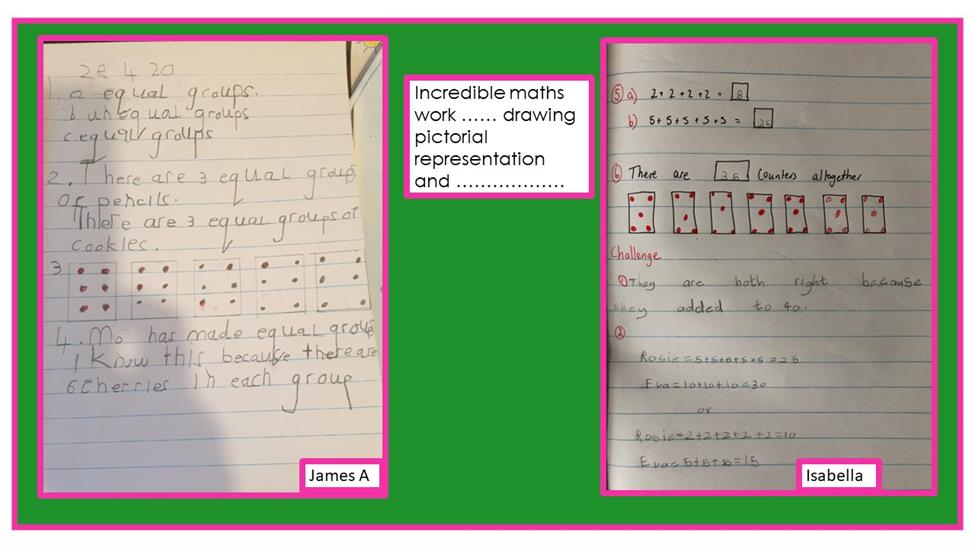 28 4 20
1. a equal groups.
b unequal groups
c. equal groups
2. There are 3 equal groups
of pencils.
There are 3 equal groups of
cookies.
3
4. Mo has made equal groups
I know this because there are
6 cherries in each group
James A
Incredible maths
work ...... drawing
pictorial
representation
and ..................
⑤ a) 2+2+2+2 = 8
b) 5+5+5+5+5 = 25
⑥ There are 35 counters altogether
Challenge
① They are both right because
they added to 40.
②
Rosie=5+5+5+5+5=25
Eva=10+10+10=30
or
Rosie=2+2+2+2+2=10
Eva=5+5+5=15
Isabella